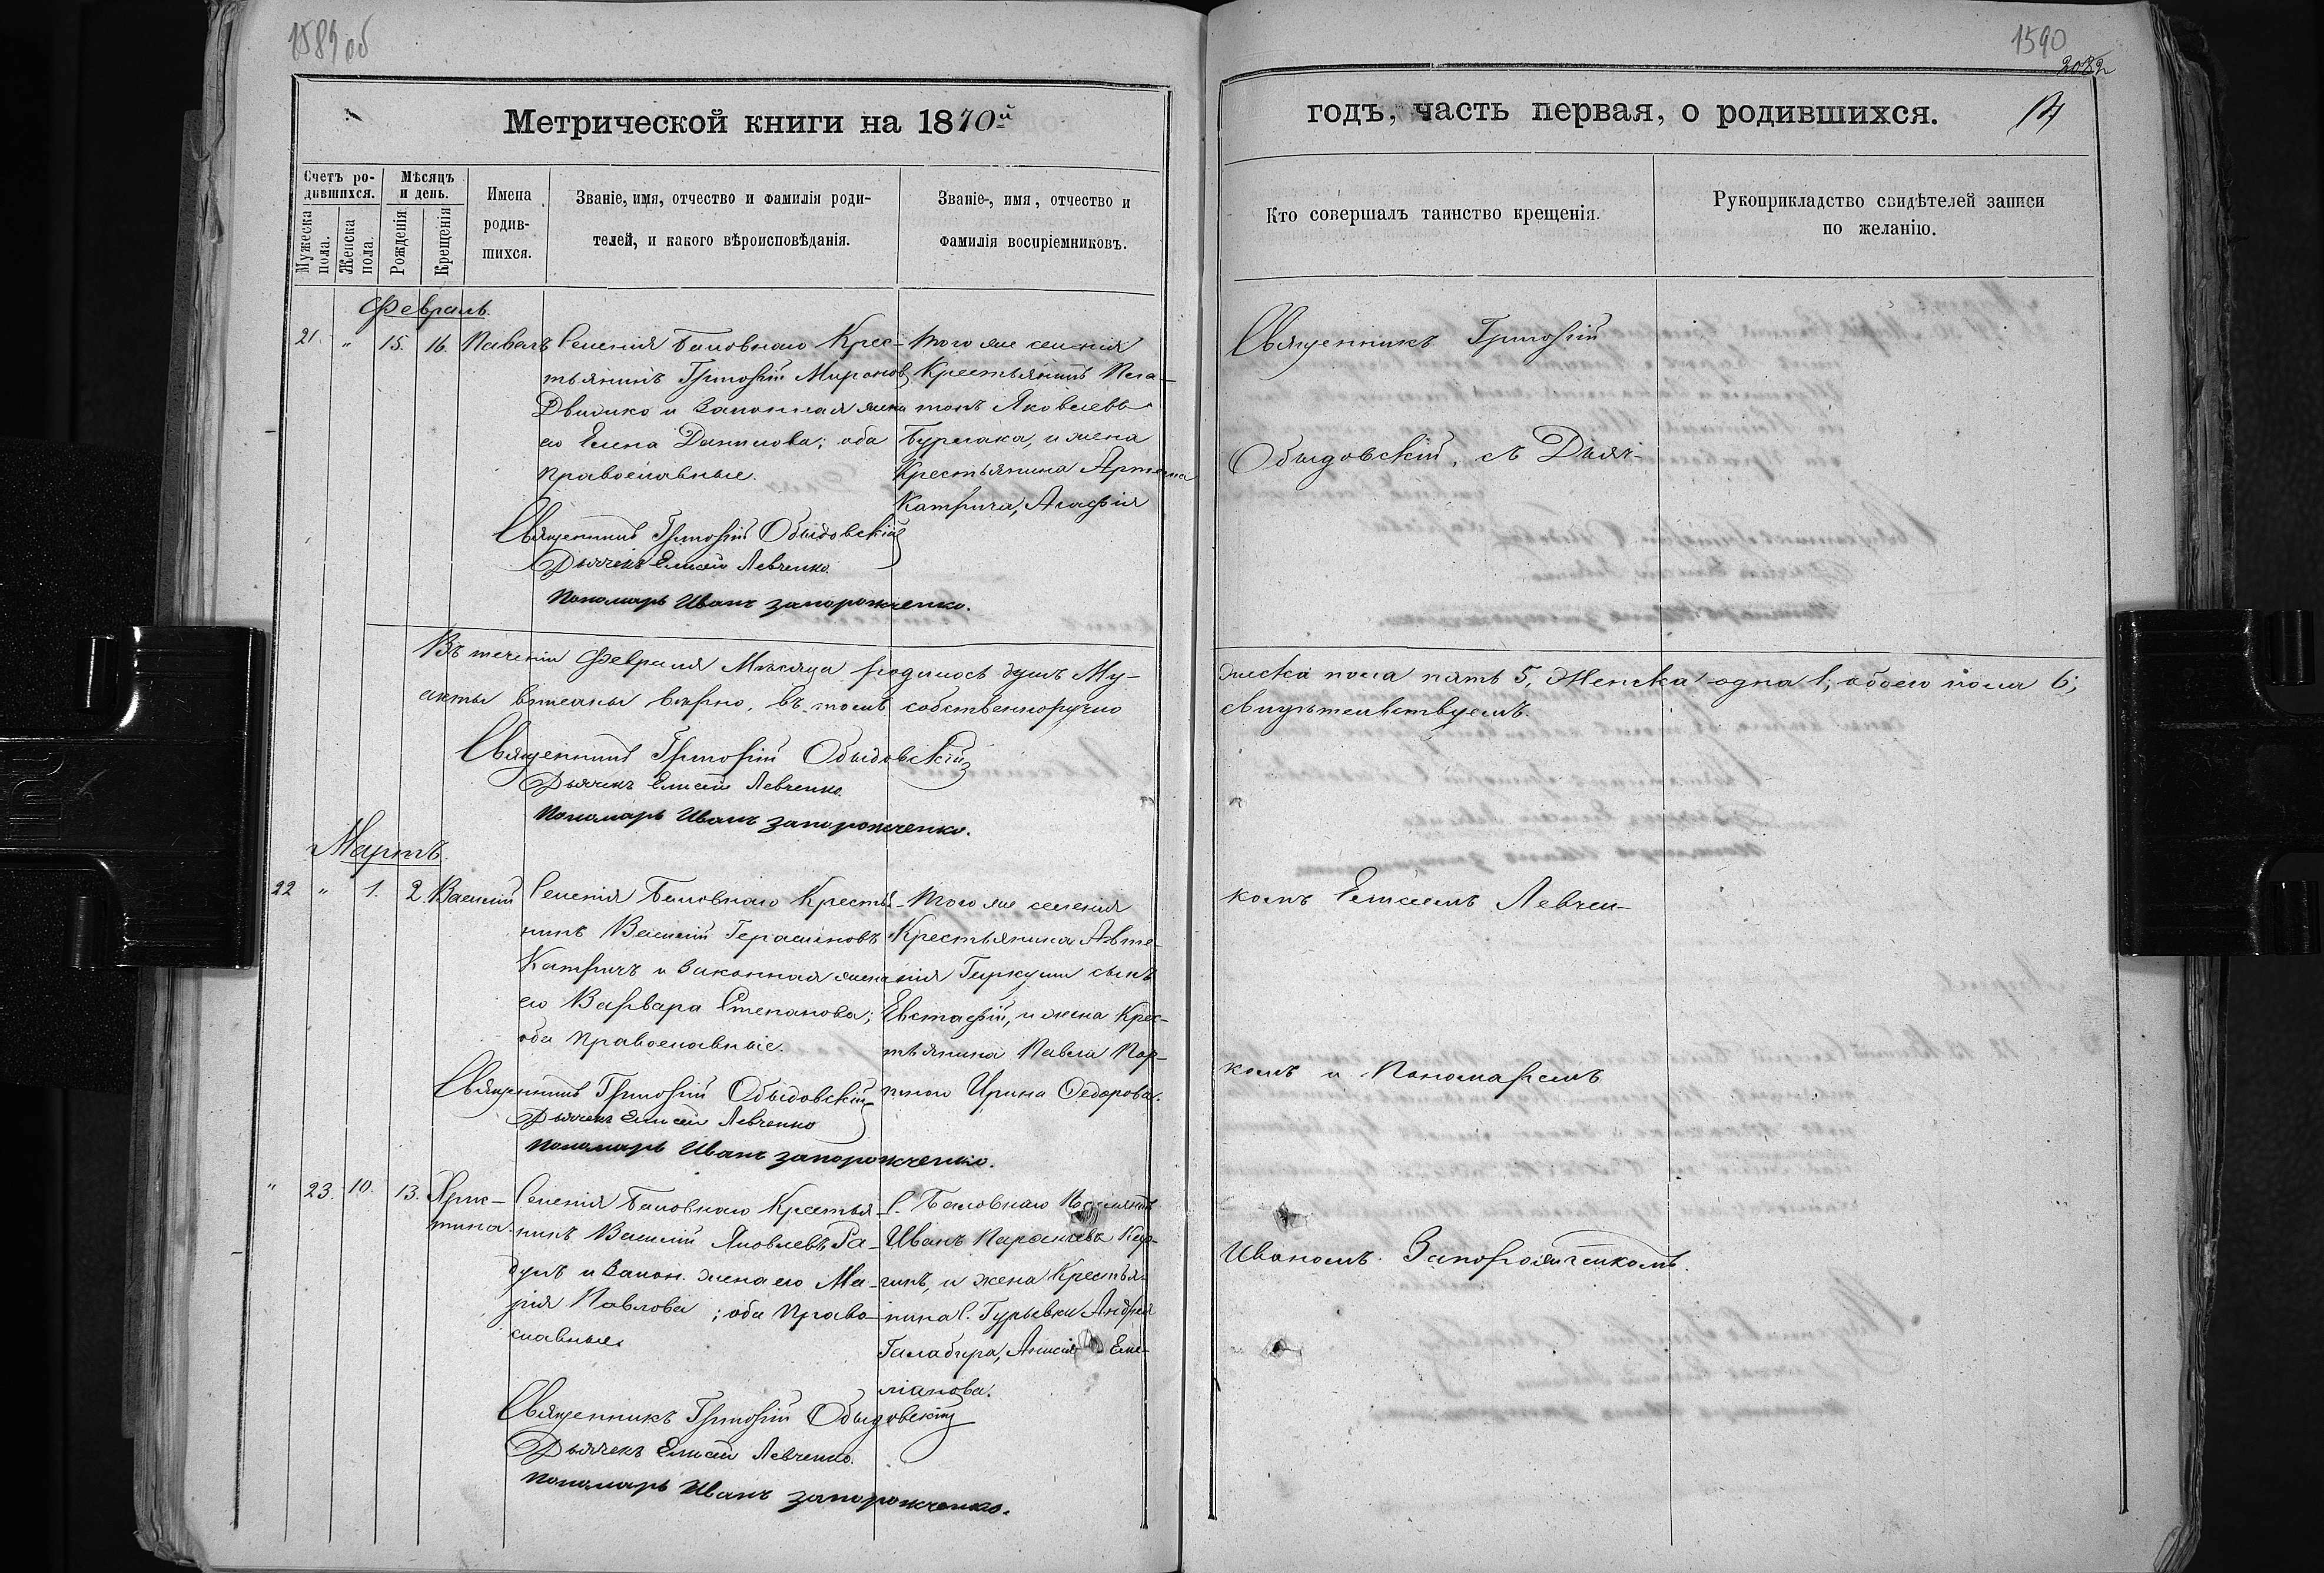 1589 об
Метрической книги на 1870й
Счетъ ро-
дившихся.
Мужеска пола.
Женска пола.
Мѣсяцъ и день.
Рожденія
Крещенія
Имена
родив-
шихся.
Званіе, имя, отчество и фамилія роди-
телей, и какого вѣроисповѣданія.
Званіе, имя, отчество и
фамилія воспріемниковъ.
Февраль.
21. " 15. 16. Павелъ
Селенія Баловнаго Крес-
тьянинъ Григорій Миронов
и Законная жена
его Елена Данилова; оба
православные.
Того же селенія
Крестьянинъ Пла-
тонъ Яковлевъ
Бурлака, и жена
Крестьянина Артема
Катрича, Агафія
Священникъ Григорій Обыдовскій
Дьячекъ Елисей Левченко.
Пономарь Иванъ Запорожченко.
Въ теченіи Февраля Мѣсяца родилось душъ Му-
акты вписаны вѣрно, въ томъ собственноручно
Священникъ Григорій Обыдовскій
Дьячекъ Елисей Левченко.
Пономарь Иванъ Запорожченко.
Мартъ.
22 " 1. 2. Василій
Селенія Баловнаго Крестья-
нинъ Василій Герасимовъ
Катричъ и Законная жена
его Варвара Степанова;
оба Православные.
Того же селенія
Крестьянина Авте-
нія сынъ
Евстафій, и жена Крес-
тьянина Павла Пор-
тного Ирина Федорова.
Священникъ Григорій Обыдовскій
Дьячекъ Елисей Левченко
Пономарь Иванъ Запорожченко.
" 23. 10. 13. Хрис-
тина.
Селенія Баловнаго Крестья-
нинъ Василій Яковлевъ Га-
и Закон. жена его Ма-
рія Павлова; оба Право-
славные.
С. Баловнаго
Иванъ
и жена Крестья-
нина С. Гурьевки Андрея
Галабира, Еме-
ліанова.
Священникъ Григорій Обыдовскій
Дьячекъ Елисей Левченко.
Пономарь Иванъ Запорожченко.
1590
2082
годъ, часть первая, о родившихся.
Кто совершалъ таинство крещенія.
Рукоприкладство свидѣтелей записи
по желанію.
Священникъ Григорій
Обыдовскій, съ Дьяч-
жеска пола пять 5, Женска одна 1, обоего пола 6;
свидѣтельствуемъ.
комъ Елисеемъ Левчен-
комъ и Пономаремъ
Иваномъ Запорожченкомъ.